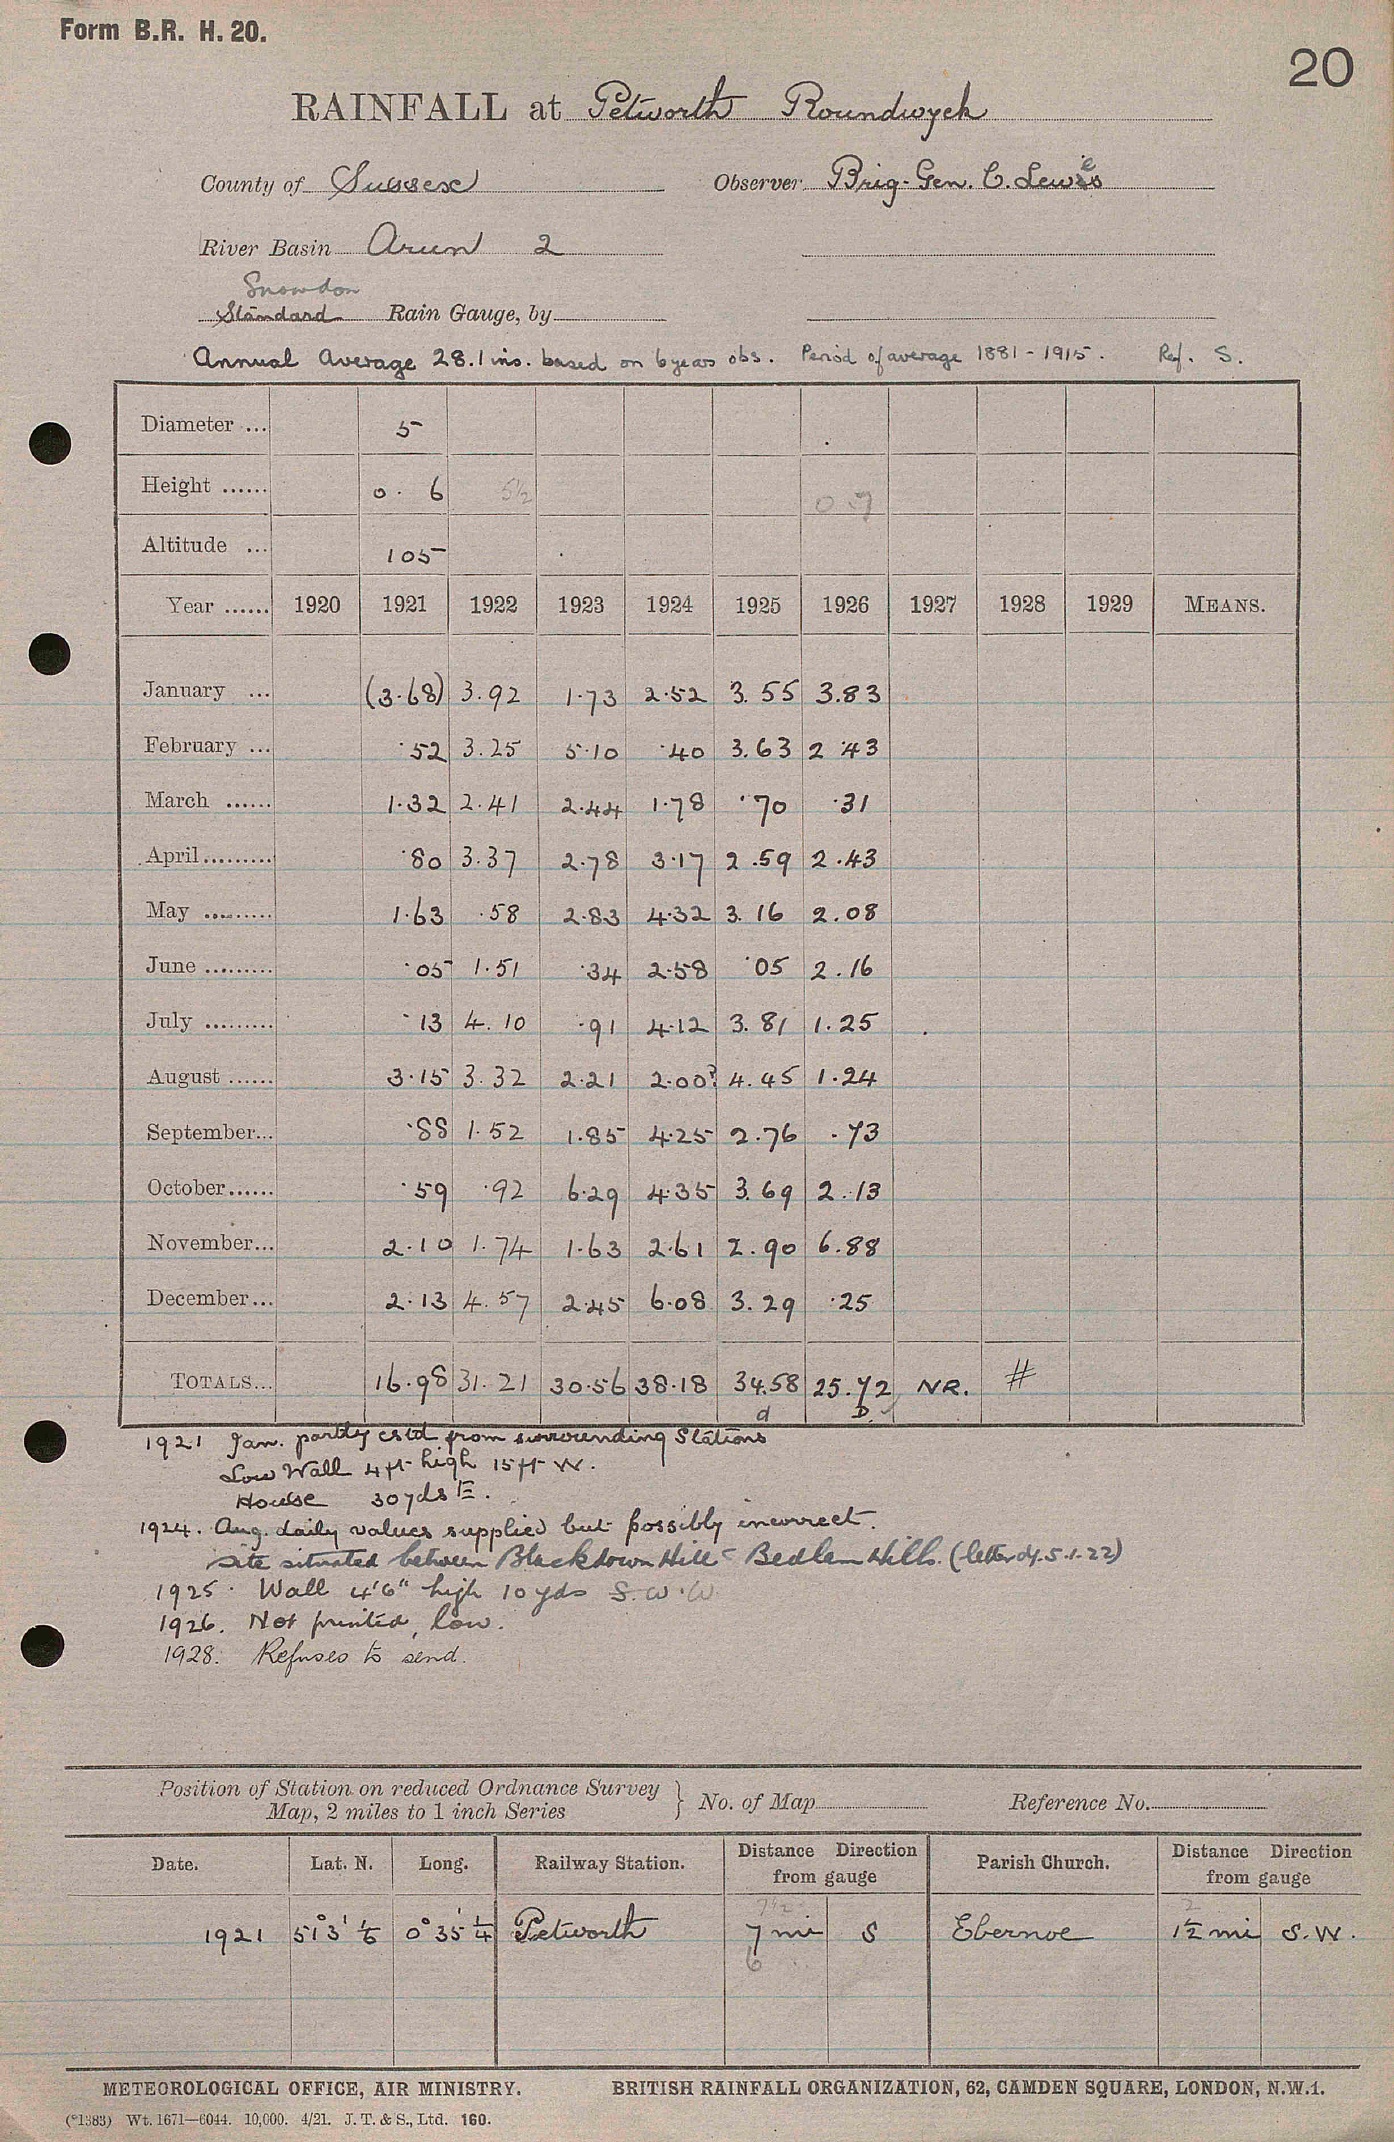 Form B.R. H. 20.
20
RAINFALL at Petworth Roundwyck
County of Sussex Observer Brig-Gen. C. Lewis
River Basin Arun 2
Snowdon
Standard Rain Gauge, by
Annual Average 28.1 ins. based on 6 years obs. Period of average 1881-1915. Ref. S.
Diameter ... 5
Height ...... 0. 6 5½ 0.7
Altitude ... 105
Year ...... 1920 1921 1922 1923 1924 1925 1926 1927 1928 1929 MEANS.
January ... (3.68) 3.92 1.73 2.52 3.55 3.83
February ... .52 3.25 5.10 .40 3.63 2.43
March ...... 1.32 2.41 2.44 1.78 .70 .31
April......... .80 3.37 2.78 3.17 2.59 2.43
May ......... 1.63 .58 2.83 4.32 3.16 2.08
June ......... .05 1.51 .34 2.58 .05 2.16
July ......... .13 4.10 .91 4.12 3.81 1.25
August ...... 3.15 3.32 2.21 2.00? 4.45 1.24
September... .88 1.52 1.85 4.25 2.76 .73
October...... .59 .92 6.29 4.35 3.69 2.13
November... 2.10 1.74 1.63 2.61 2.90 6.88
December... 2.13 4.57 2.45 6.08 3.29 .25
TOTALS... 16.98 31.21 30.56 38.18 34.58 25.72 NR. #
d D.
1921 Jan. partly estd from surrounding Stations
Low Wall 4 ft high 15 ft W.
House 30 yds E.
1924. Aug. daily values supplied but possibly incorrect.
Site situated between Blackdown Hill & Bedlam Hills. (letter of 5.1.22)
1925. Wall 4'6" high 10 yds S.W. W
1926. Not printed, low.
1928. Refuses to send.
Position of Station on reduced Ordnance Survey Map, 2 miles to 1 inch Series } No. of Map Reference No.
Date. Lat. N. Long. Railway Station. Distance Direction from gauge Parish Church. Distance Direction from gauge
7½ 2
1921 51° 3' 1/6 0° 35' 1/4 Petworth 7 mi S Ebernoe 1½ mi S.W.
6
METEOROLOGICAL OFFICE, AIR MINISTRY. BRITISH RAINFALL ORGANIZATION, 62, CAMDEN SQUARE, LONDON, N.W.1.
(*1383) Wt. 1671—6044. 10,000. 4/21. J. T. & S., Ltd. 160.